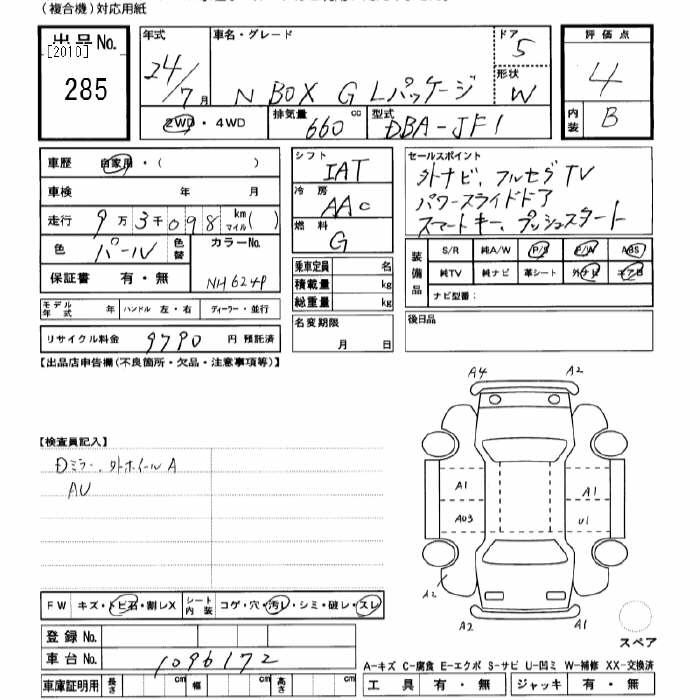 (複合機)対応用紙
出品No.
[2010]
285
年式
24/7月
車名・グレード
N BOX G Lパッケージ
ドア
5
形状
W
2WD・4WD
排気量
660 cc
型式
DBA-JF1
評価点
4
内装
B
車歴 自家用・( )
車検 年 月
走行 9万3千098 km マイル( )
色 パール 色替
カラーNo.
NH624P
保証書 有・無
モデル年式 年 ハンドル 左・右 ディーラー・並行
リサイクル料金 9790 円 預託済
シフト
IAT
冷房
AAC
燃料
G
乗車定員 名
積載量 kg
総重量 kg
名変期限
月 日
セールスポイント
外ナビ、フルセグTV
パワースライドドア
スマートキー、プッシュスタート
装備品
S/R 純A/W P/S P/W ABS
純TV 純ナビ 革シート 外ナビ エアB
ナビ型番:
後日品
【出品店申告欄(不良箇所・欠品・注意事項等)】
【検査員記入】
Dミラー、外ホイールA
AU
A4 A2
A1 A1
A03 U1
A2
A2 A1
スペア
FW キズ・トビ石・割レX シート内装 コゲ・穴・汚レ・シミ・破レ・スレ
登録No.
車台No. 1096172
車庫証明用 長さ cm 幅 cm 高さ cm
A-キズ C-腐食 E-エクボ S-サビ U-凹ミ W-補修 XX-交換済
工具 有・無 ジャッキ 有・無